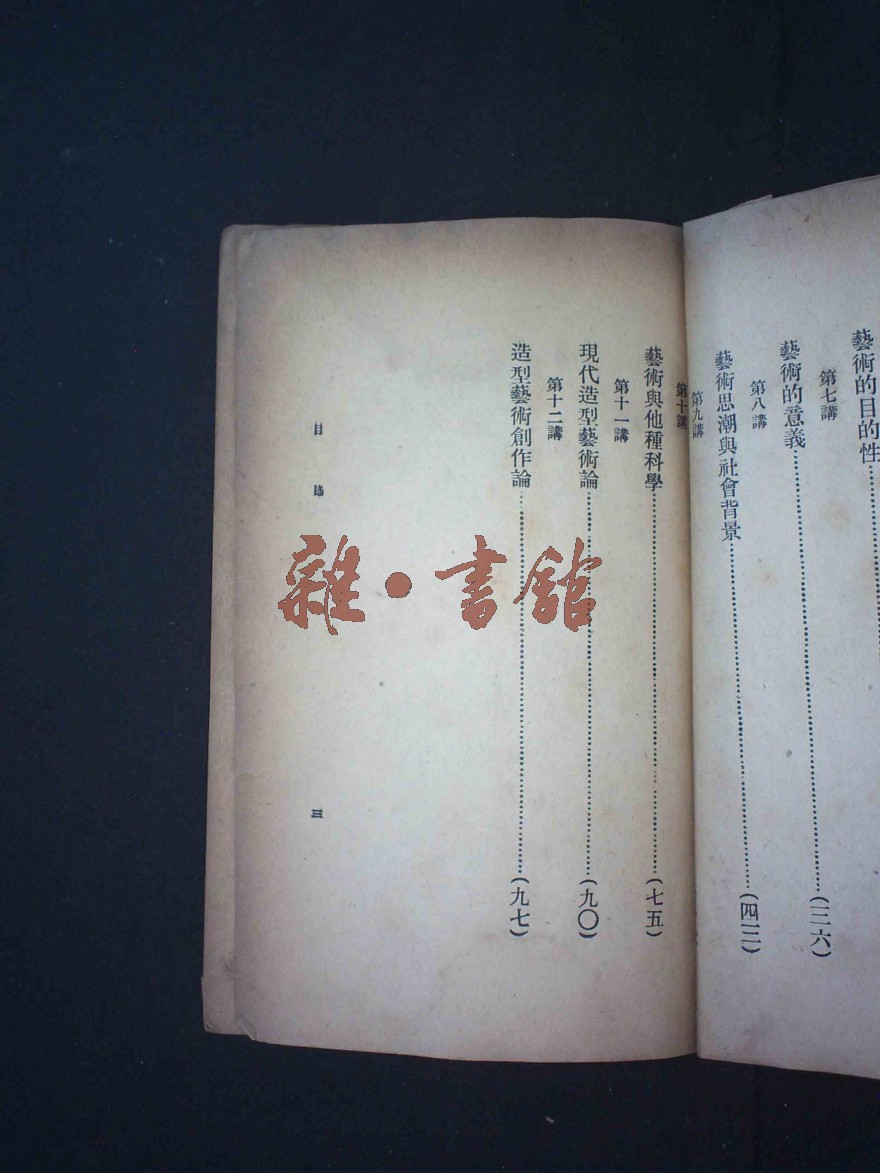 藝術的目的性……
第七講
藝術的意義……(三六)
第八講
藝術思潮與社會背景……(四三)
第九講
第十講
藝術與他種科學……(七五)
第十一講
現代造型藝術論……(九〇)
第十二講
造型藝術創作論……(九七)
目錄 三
雜·書館